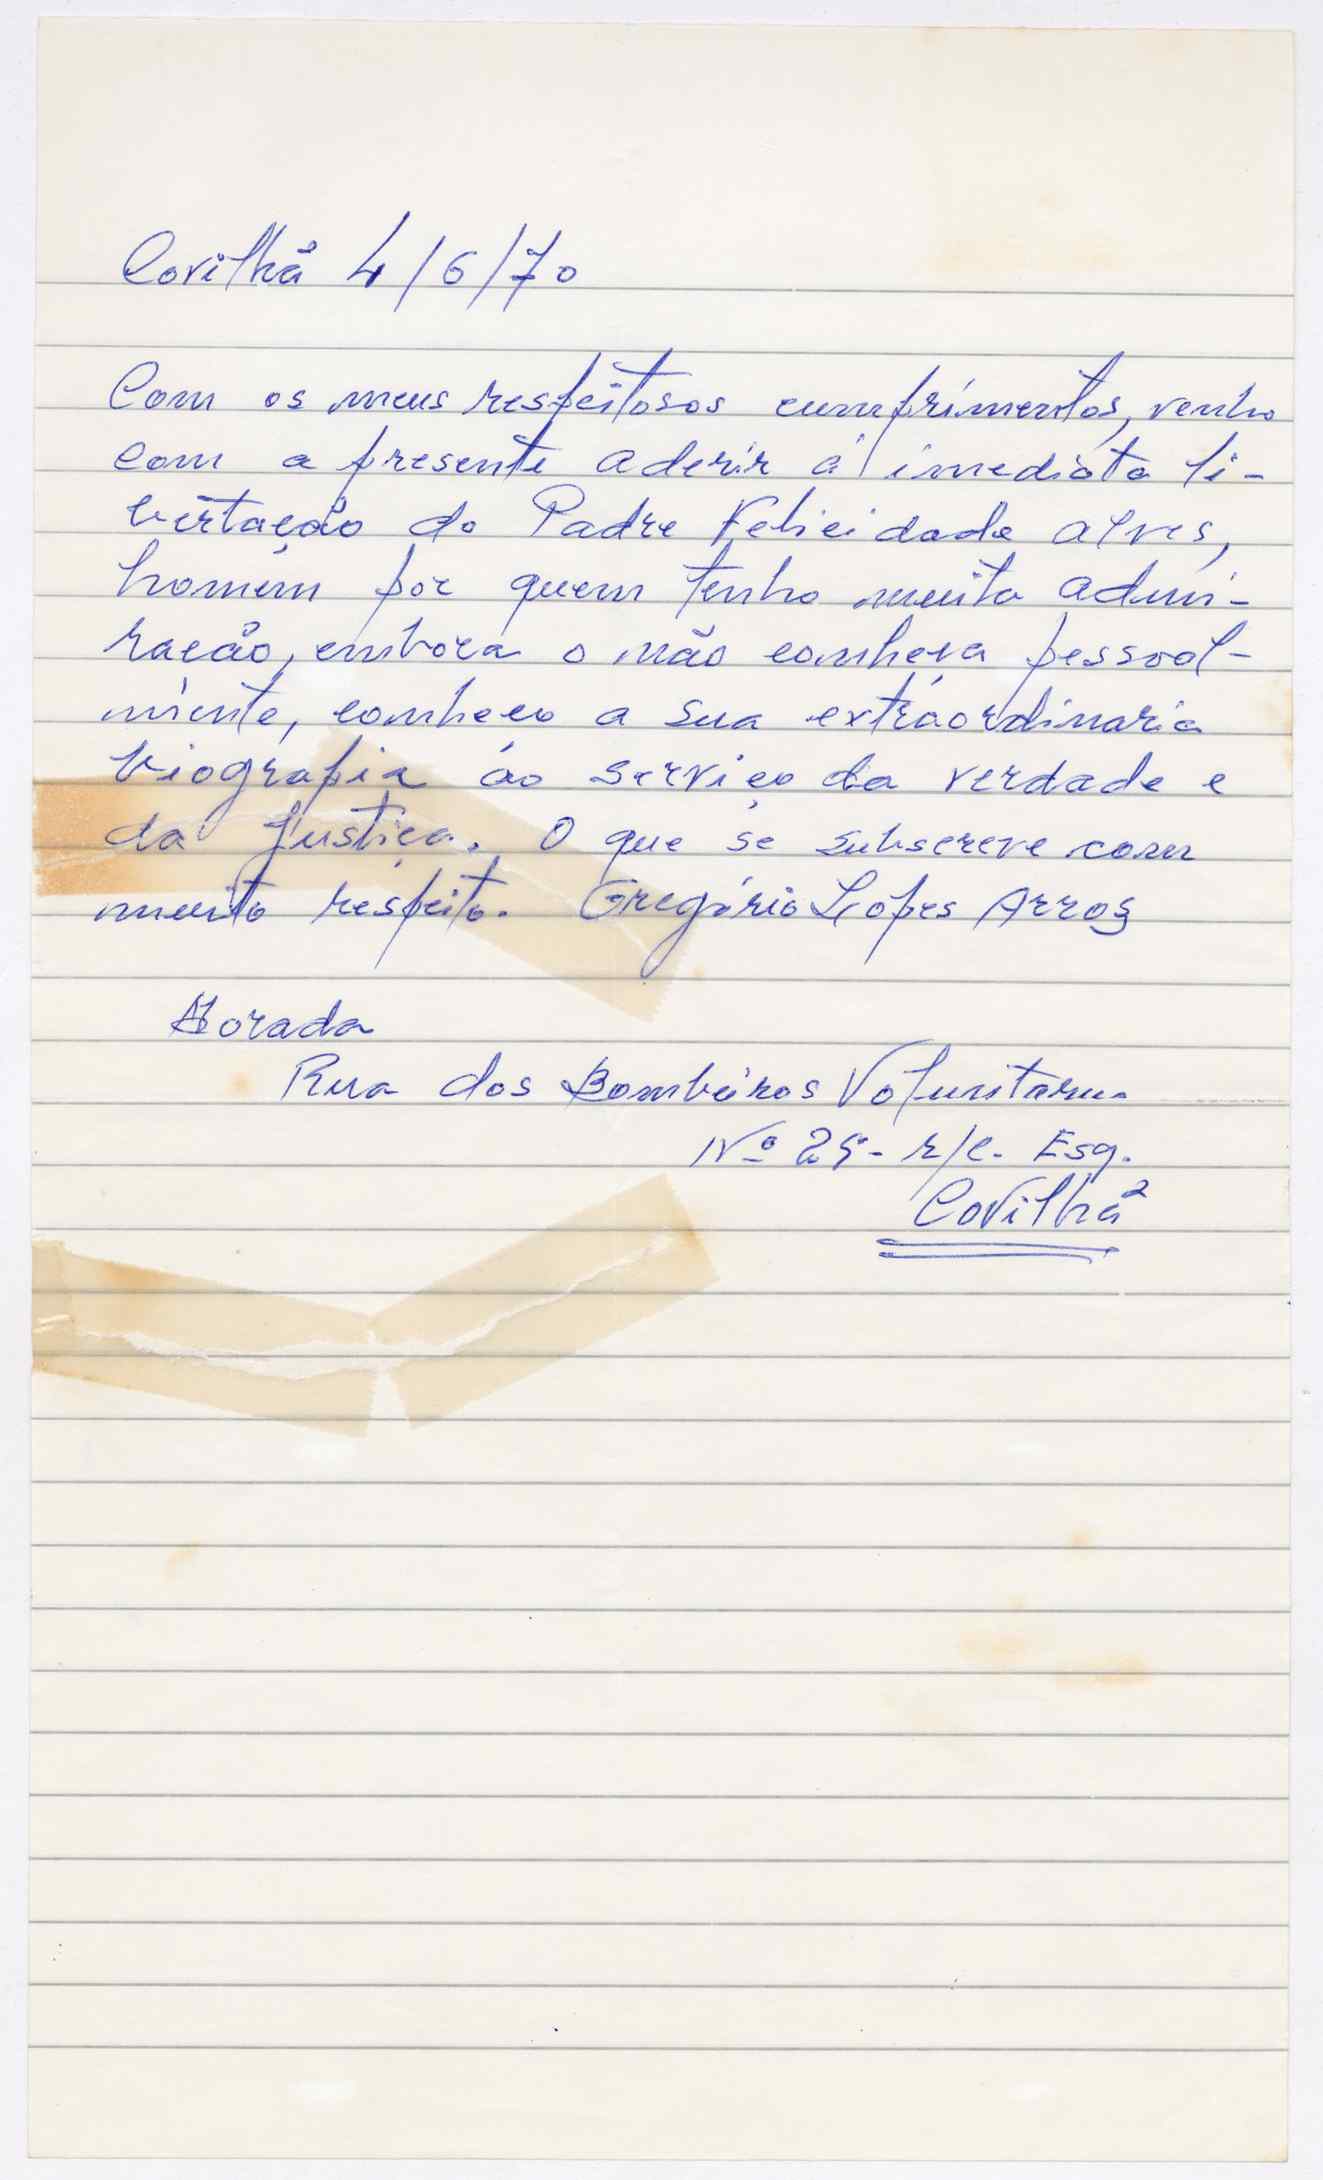 Covilhã 4/6/70
Com os meus respeitosos cumprimentos, venho
com a presente aderir á imediata li-
bertação do Padre Felicidade Alves,
homem por quem tenho muita admi-
ração, embora o não conheça pessoal-
mente, conheço a sua extraordinaria
biografia áo serviço da verdade e
da Justiça. O que se subscreve com
muito respeito. Gregório Lopes Arros
Morada
Rua dos Bombeiros Voluntarios
Nº 25- r/c. Esq.
Covilhã